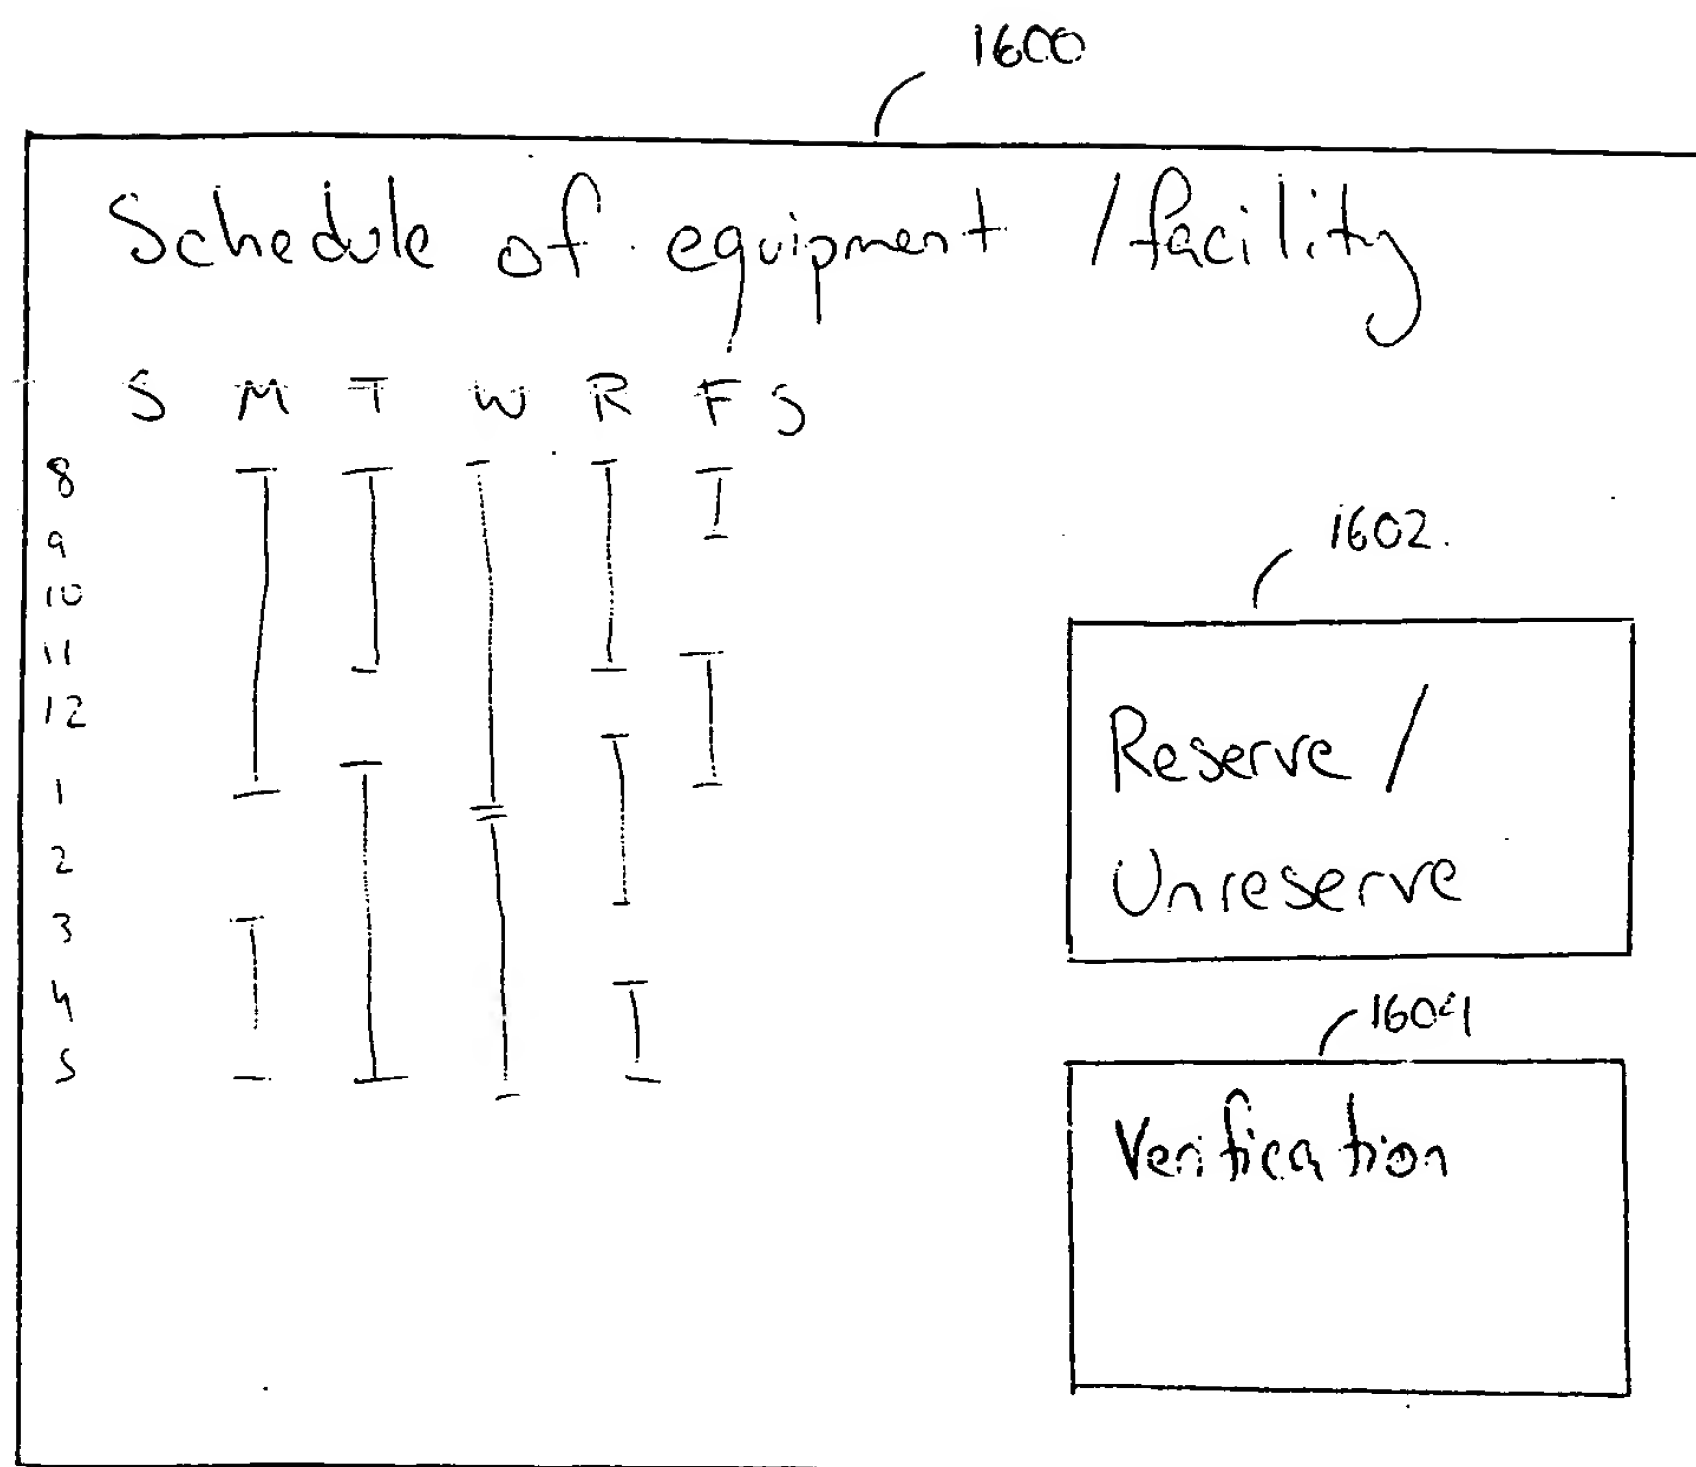 1600
Schedule of equipment / facility
S M T W R F S
8
9
10
11
12
1
2
3
4
5
1602.
Reserve /
Unreserve
1604
Verification